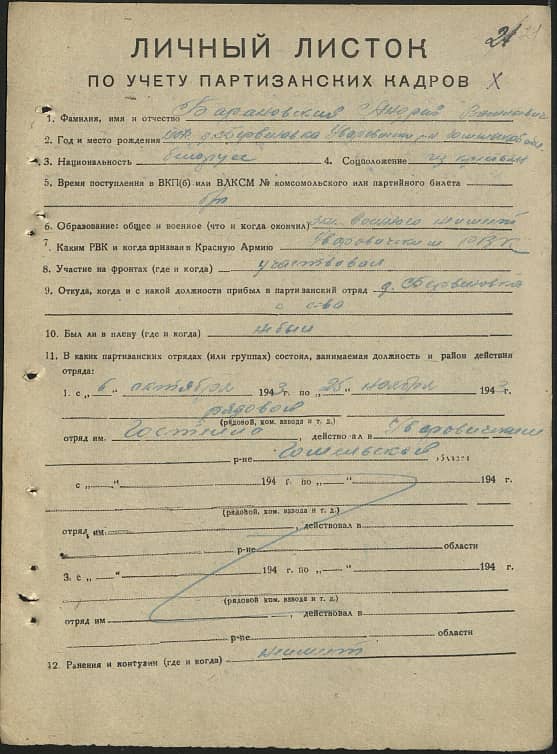 21
ЛИЧНЫЙ ЛИСТОК
ПО УЧЕТУ ПАРТИЗАНСКИХ КАДРОВ
1. Фамилия, имя и отчество Барановский Андрей
2. Год и место рождения
3. Национальность белорус 4. Соцположение из крестьян
5. Время поступления в ВКП(б) или ВЛКСМ № комсомольского или партийного билета
б/п
6. Образование: общее и военное (что и когда окончил)
7. Каким РВК и когда призван в Красную Армию Уваровичским РВК
8. Участие на фронтах (где и когда) участвовал
9. Откуда, когда и с какой должности прибыл в партизанский отряд д.
10. Был ли в плену (где и когда) не был
11. В каких партизанских отрядах (или группах) состоял, занимаемая должность и район действия
отряда:
1. с „6 октября 1943 г. по „25" ноября 1943 г.
рядовой
(рядовой, ком. взвода и т. д.)
отряд им. , действовал в Уваровичским
р-не Гомельской области
с „ " 194 г. по „ " 194 г.
(рядовой, ком. взвода и т. д.)
отряд им. , действовал в
р-не области
3. с „ " 194 г. по „ " 194 г.
(рядовой ком. взвода и т. д.)
отряд им , действовал в
р-не области
12. Ранения и контузии (где и когда) не имеет